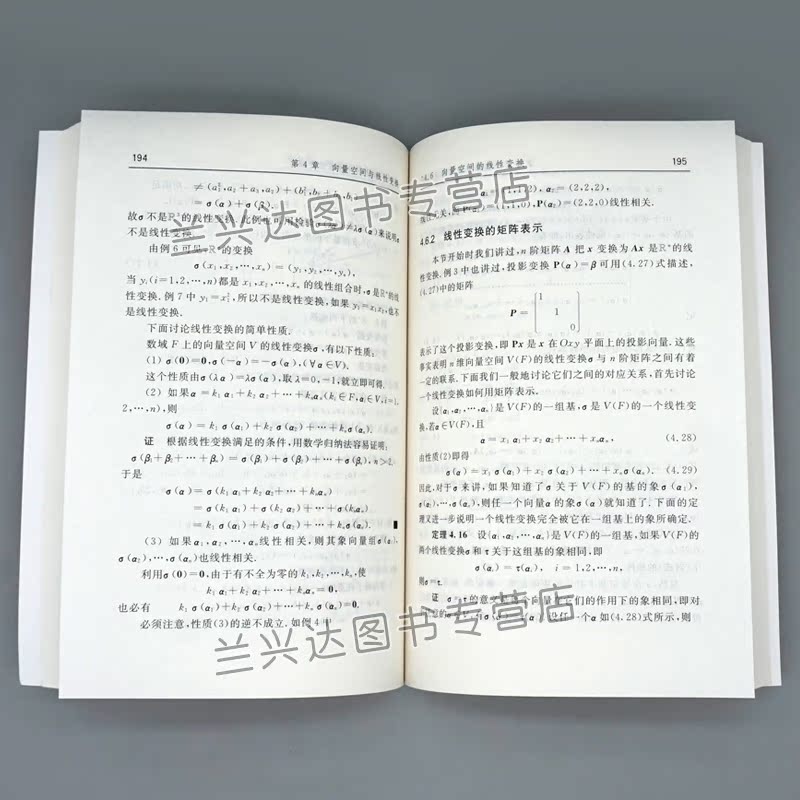 194
第4章 向量空间与线性变换
≠(a₁²,a₂+a₃,a₂)+(b₁²,b₂+b₃,b₂)
=σ(α)+σ(β).
故σ不是R³的线性变换.此例也可用检验σ(λα)≠λσ(α)来说明σ
不是线性变换.
由例6可见,Rⁿ的变换
σ(x₁,x₂,⋯,xₙ)=(y₁,y₂,⋯,yₙ),
当yᵢ(i=1,2,⋯,n)都是x₁,x₂,⋯,xₙ的线性组合时,σ是Rⁿ的线
性变换.例7中y₁=x₁²,所以不是线性变换,如果y₁=x₁x₂,也不
是线性变换.
下面讨论线性变换的简单性质.
数域F上的向量空间V的线性变换σ,有以下性质:
(1) σ(0)=0,σ(-α)=-σ(α),(∀α∈V).
这个性质由σ(λα)=λσ(α),取λ=0,-1,就立即可得.
(2) 如果α=k₁α₁+k₂α₂+⋯+kₙαₙ(kᵢ∈F,αᵢ∈V,i=1,
2,⋯,n),则
σ(α)=k₁σ(α₁)+k₂σ(α₂)+⋯+kₙσ(αₙ).
证 根据线性变换满足的条件,用数学归纳法容易证明:
σ(β₁+β₂+⋯+βₙ)=σ(β₁)+σ(β₂)+⋯+σ(βₙ),n>2.
于是
σ(α)=σ(k₁α₁+k₂α₂+⋯+kₙαₙ)
=σ(k₁α₁)+σ(k₂α₂)+⋯+σ(kₙαₙ)
=k₁σ(α₁)+k₂σ(α₂)+⋯+kₙσ(αₙ). ∎
(3) 如果α₁,α₂,⋯,αₙ线性相关,则其象向量组σ(α₁),
σ(α₂),⋯,σ(αₙ)也线性相关.
利用σ(0)=0,由于有不全为零的k₁,k₂,⋯,kₙ,使
k₁α₁+k₂α₂+⋯+kₙαₙ=0,
也必有 k₁σ(α₁)+k₂σ(α₂)+⋯+kₙσ(αₙ)=0.
必须注意,性质(3)的逆不成立.如例4中
4.6 向量空间的线性变换
195
α₁=(1,1,2),α₂=(2,2,2),
线性无关,而P(α₁)=(1,1,0),P(α₂)=(2,2,0)线性相关.
4.6.2 线性变换的矩阵表示
本节开始时我们讲过,n阶矩阵A把x变换为Ax是Rⁿ的线
性变换.例3中也讲过,投影变换P(α)=β可用(4.27)式描述,
(4.27)中的矩阵
1
P= 1
0
表示了这个投影变换,即Px是x在Oxy平面上的投影向量.这些
事实表明n维向量空间V(F)的线性变换σ与n阶矩阵之间有着
一定的联系.下面我们一般地讨论它们之间的对应关系,首先讨论
一个线性变换如何用矩阵表示.
设{α₁,α₂,⋯,αₙ}是V(F)的一组基,σ是V(F)的一个线性变
换,若α∈V(F),且
α=x₁α₁+x₂α₂+⋯+xₙαₙ, (4.28)
由性质(2)即得
σ(α)=x₁σ(α₁)+x₂σ(α₂)+⋯+xₙσ(αₙ). (4.29)
因此,对于σ来讲,如果知道了σ关于V(F)的基的象σ(α₁),
σ(α₂),⋯,σ(αₙ),则任一个向量α的象σ(α)就知道了.下面的定
理又进一步说明一个线性变换完全被它在一组基上的象所确定.
定理4.16 设{α₁,α₂,⋯,αₙ}是V(F)的一组基,如果V(F)的
两个线性变换σ和τ关于这组基的象相同,即
σ(αᵢ)=τ(αᵢ), i=1,2,⋯,n,
则σ=τ.
证 σ=τ的意义是每个向量在它们的作用下的象相同,即对
σ(α)=τ(α).设任一个α如(4.28)式所示,则
兰兴达图书专营店
兰兴达图书专营店